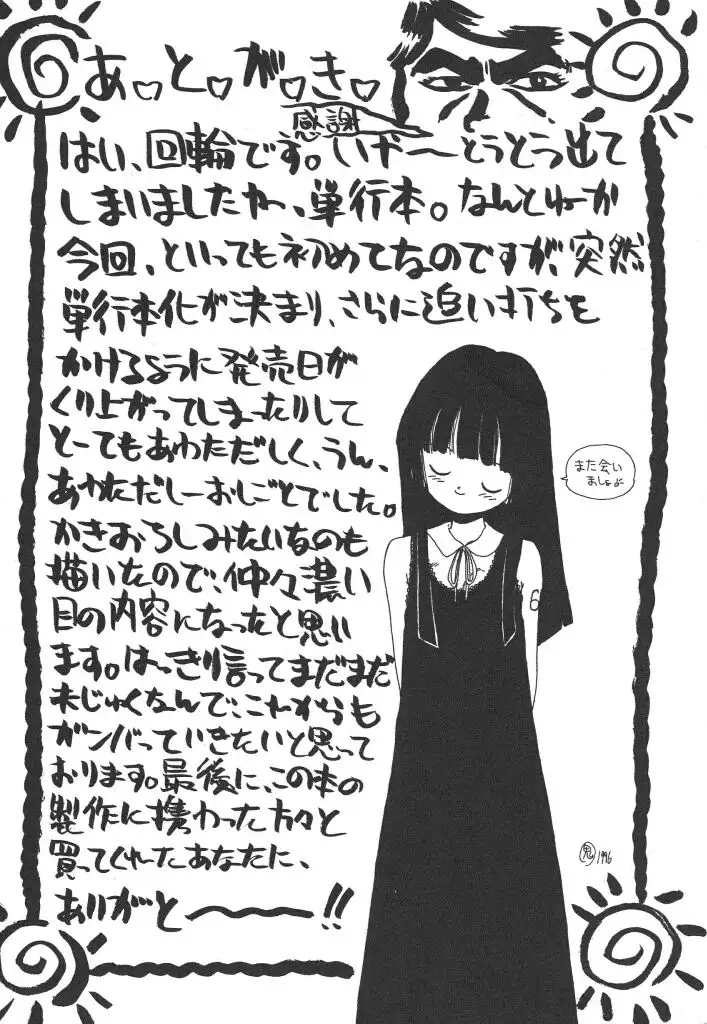 あ・と・が・き・
感謝
はい、回輪です。いやーとうとう出て
しまいましたねー、単行本。なんとゆーか
今回、といっても初めてなのですが、突然
単行本化が決まり、さらに追い打ちを
かけるように発売日が
くり上がってしまったりして
とーてもあわただしく、うん、
あわただしーおしごとでした。
かきおろしみたいなのも
描いたので、仲々濃い
目の内容になったと思い
ます。はっきり言ってまだまだ
未じゅくなんで、これからも
ガンバっていきたいと思って
おります。最後に、この本の
製作に携わった方々と
買ってくれたあなたに、
ありがとーーー!!
また会い
ましょよ
6
鬼 1996